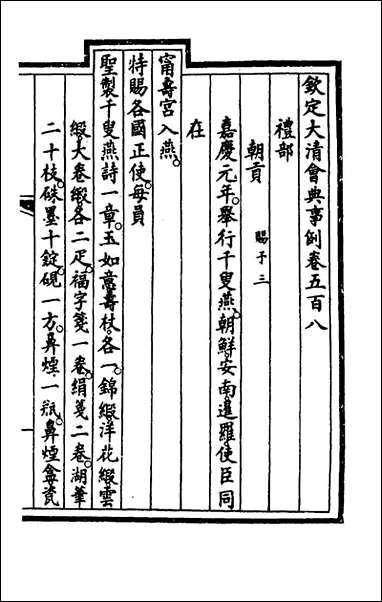 欽定大清會典事例卷五百八
禮部
朝貢 賜予三
嘉慶元年。舉行千叟燕。朝鮮。安南。暹羅。使臣同
在
甯壽宮入燕。
特賜各國正使每員
聖製千叟燕詩一章。玉如意。壽杖。各一。錦緞。洋花緞。雲
緞。大卷緞。各二疋。福字箋一卷。絹箋二卷。湖筆
二十枝。硃墨十錠。硯一方。鼻煙一瓶。鼻煙盒。瓷